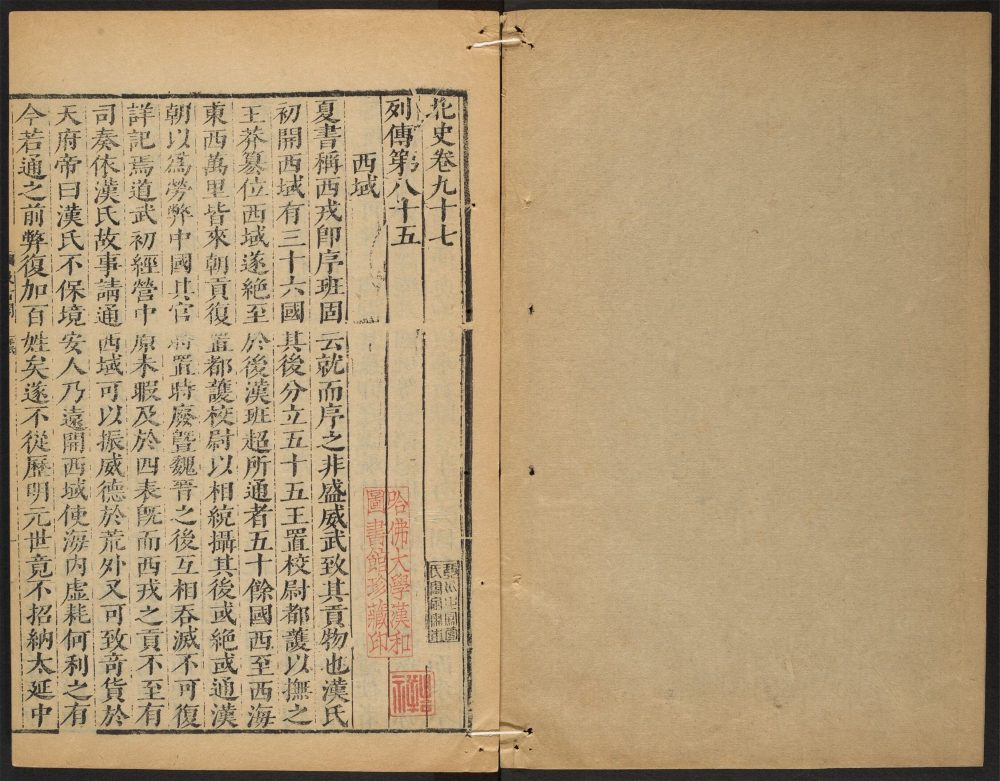 北史卷九十七
列傳第八十五
西域
夏書稱西戎卽序班固云就而序之非盛威武致其貢物也漢氏
初開西域有三十六國其後分立五十五王置校尉都護以撫之
王莽篡位西域遂絶至於後漢班超所通者五十餘國西至西海
東西萬里皆來朝貢復置都護校尉以相統攝其後或絶或通漢
朝以爲勞弊中國其官時置時廢曁魏晉之後互相吞滅不可復
詳記焉道武初經營中原未暇及於四表旣而西戎之貢不至有
司奏依漢氏故事請通西域可以振威德於荒外又可致奇貨於
天府帝曰漢氏不保境安人乃遠開西域使海內虛耗何利之有
今若通之前弊復加百姓矣遂不從歷明元世竟不招納太延中
哈佛大學漢和
圖書館珍藏印